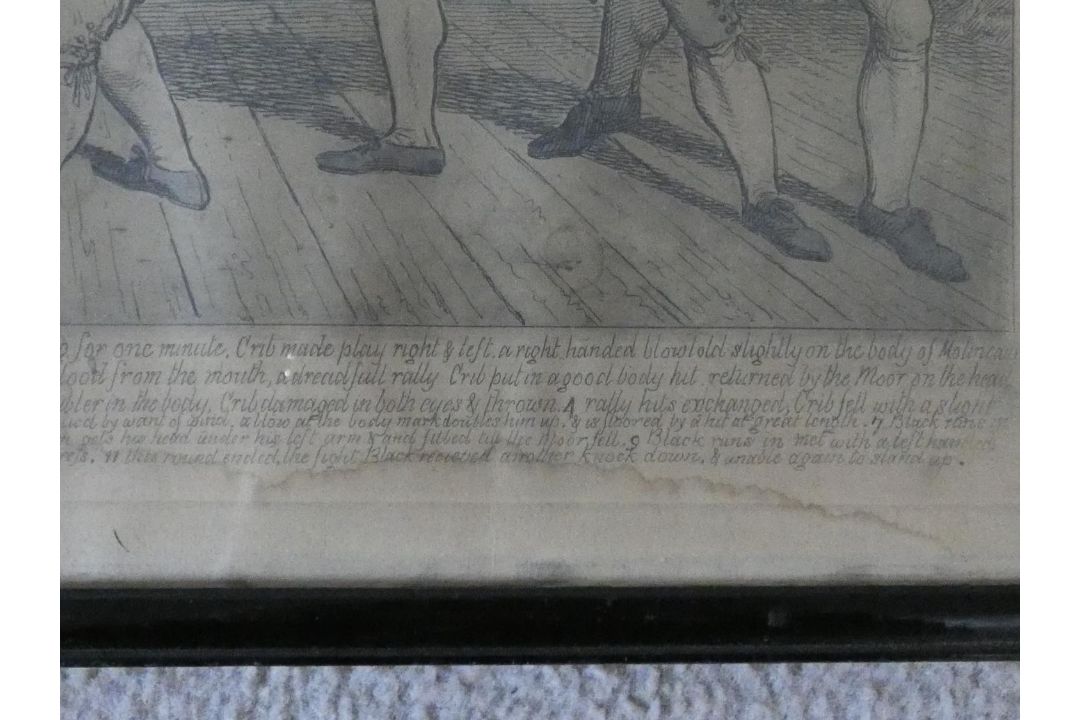 for one minute, Crib made play right & left, a right handed blow told slightly on the body of Molineaux
from the mouth, a dreadfull rally Crib put in a good body hit returned by the Moor on the head
in the body, Crib damaged in both eyes & thrown. A rally hits exchanged, Crib fell with a slight
by want of wind, a blow at the body mark doubles him up. & is floored by a hit at great length. 7 Black runs
gets his head under his left arm & and fibbed till the Moor fell. 9 Black runs in met with a left handed
11 this round ended the fight Black recieved another knock down, & unable again to stand up.